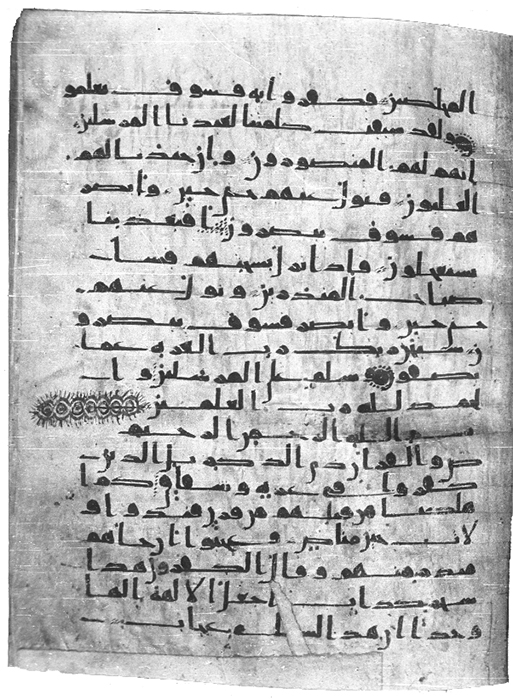 المخلصين فكفروا به فسوف يعلمو
ن ولقد سبقت كلمتنا لعبدنا المرسلين
انهم لهم المنصورون وان جندنا لهم
الغلبون فتول عنهم حتى حين وابصر
هم فسوف يبصرون افبعذبنا
يستعجلون فاذا نزل بسحتهم فسا
صباح المنذرين وتول عنهم
حتى حين وابصر فسوف يبصرو
ن سبحن ربك رب العزة عما
يصفون وسلم على المرسلين وا
لحمد لله رب العلمين
بسم الله الرحمن الرحيم
ص والقران ذي الذكر بل الذين
كفروا في عزة وشقاق كم ا
هلكنا من قبلهم من قرن فنادوا و
لات حين مناص وعجبوا ان جاهم
منذر منهم وقال الكفرون هذا
سحر كذاب اجعل الالهة الها
وحدا ان هذا لشي عجاب